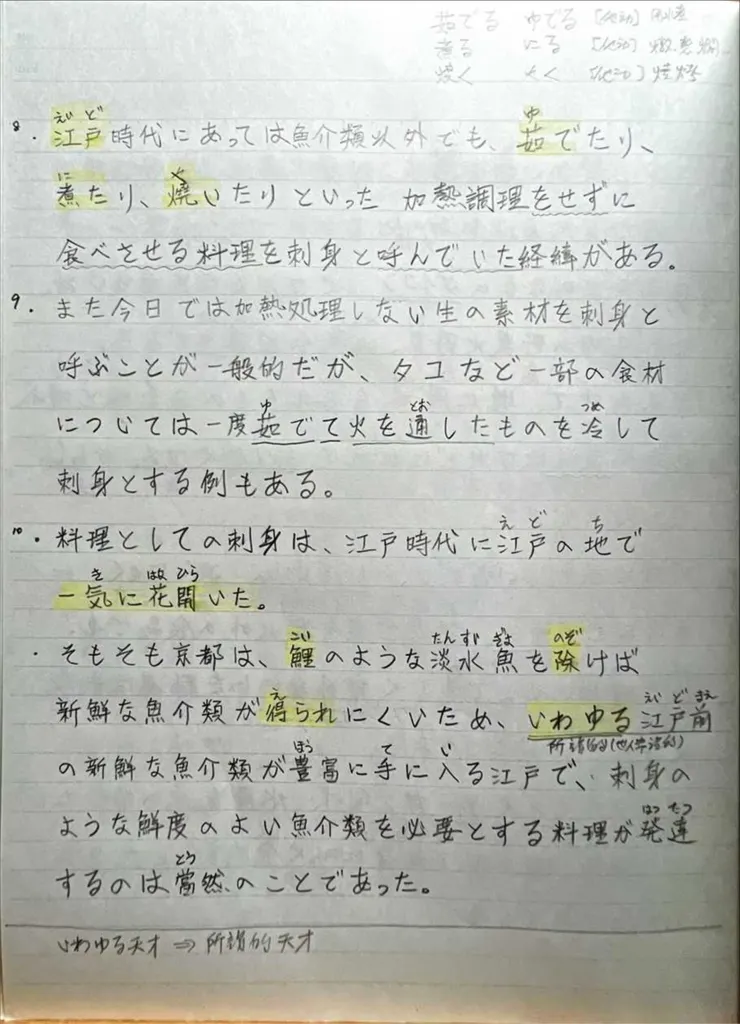 茹でる ゆでる [他动]
煮る にる [他动]
焼く やく [他动]
えど ゆ
8. 江戸時代にあっては魚介類以外でも、茹でたり、
に や
煮たり、燒いたりといった 加熱調理をせずに
食べさせる料理を刺身と呼んでいた経緯がある。
9. また今日では加熱処理しない生の素材を刺身と
呼ぶことが一般的だが、タコなど一部の食材
ゆ とお つめ
については一度茹でて火を通したものを冷して
刺身とする例もある。
えど ち
10. 料理としての刺身は、江戸時代に江戸の地で
き はな ひら
一気に花開いた。
こい たんすい ぎょ のぞ
・そもそも京都は、鯉のような淡水魚を除けば
え えど まえ
新鮮な魚介類が得られにくいため、いわゆる江戸前
所謂的(世人常说的)
ほう て い
の新鮮な魚介類が豊富に手に入る江戸で、刺身の
はったつ
ような鮮度のよい魚介類を必要とする料理が発達
とう
するのは當然のことであった。
いわゆる天才 ⇒ 所謂的天才